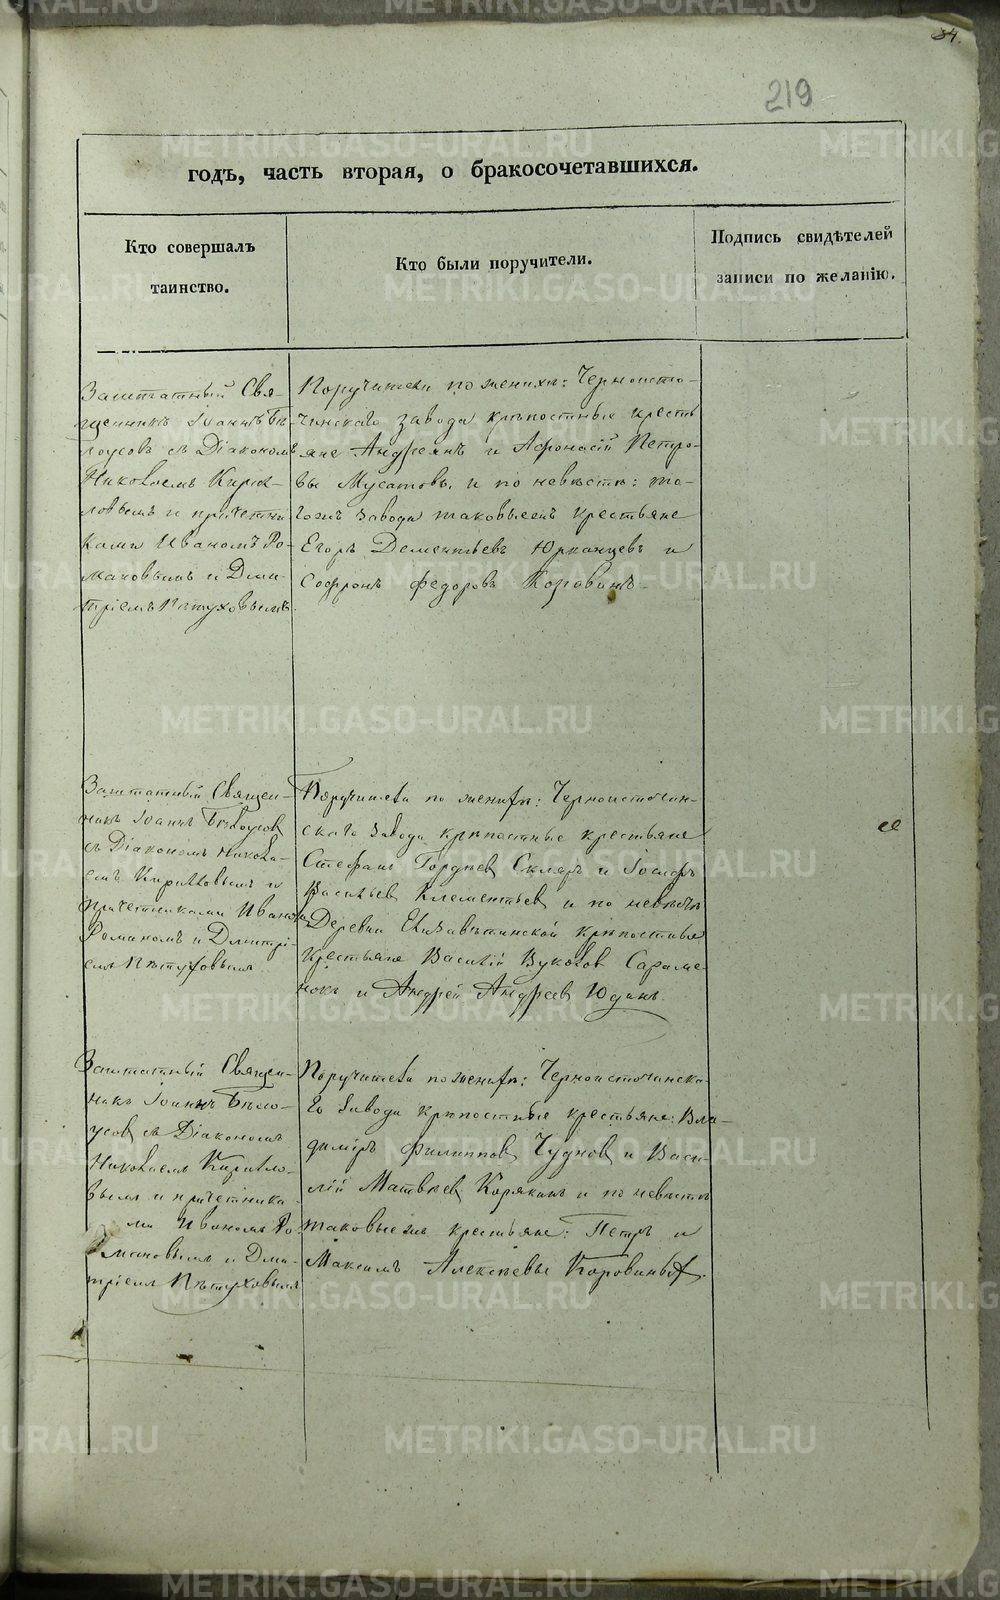 84.
219
годъ, часть вторая, о бракосочетавшихся.
Кто совершалъ
таинство.
Кто были поручители.
Подпись свидѣтелей
записи по желанію.
Заштатный Свя-
щенникъ Іоаннъ Бѣ
лоусовъ съ Діакономъ
Николаемъ Кирил-
ловымъ и причетни
ками Иваномъ Ро-
мановымъ и Дми-
тріемъ Пѣтуховымъ.
Поручители по женихѣ: Черноисто-
чинскаго завода крѣпостные кресть
яне Андреянъ и Афонасій Петро-
вы Мусатовы, и по невѣстѣ: то-
гожъ завода таковыежъ крестьяне
Егоръ Дементьевъ Юрканцевъ и
Софронъ Федоровъ Коровинъ.
Заштатный Священ-
никъ Іоаннъ Бѣлоусов
съ Діакономъ Никола-
емъ Кирилловымъ и
причетниками Иваномъ
Романомъ и Дмитрі-
емъ Пѣтуховымъ.
Поручители по женихѣ: Черноисточин-
скаго завода крѣпостные крестьяне
Стефанъ Гордѣев Скляръ и Іосифъ
Васильев Клементьев и по невѣстѣ
Деревни Елизаветинской крѣпостные
Крестьяне Василій Вуколов Сараме-
нокъ и Андрей Андреев Юдинъ.
Заштатный Священ-
никъ Іоаннъ Бѣло-
усов съ Діакономъ
Николаемъ Кирилло-
вымъ и причетника-
ми Иваномъ Ро-
мановымъ и Дми-
тріемъ Пѣтуховымъ
Поручители по женихѣ: Черноисточинска-
го завода крѣпостные крестьяне: Вла-
димиръ Филиппов Чуднов и Васи-
лій Матвѣев Корякинъ и по невѣстѣ
таковые жъ крестьяне: Петръ и
Максимъ Алексѣевы Коровины.
METRIKI.GASO-URAL.RU